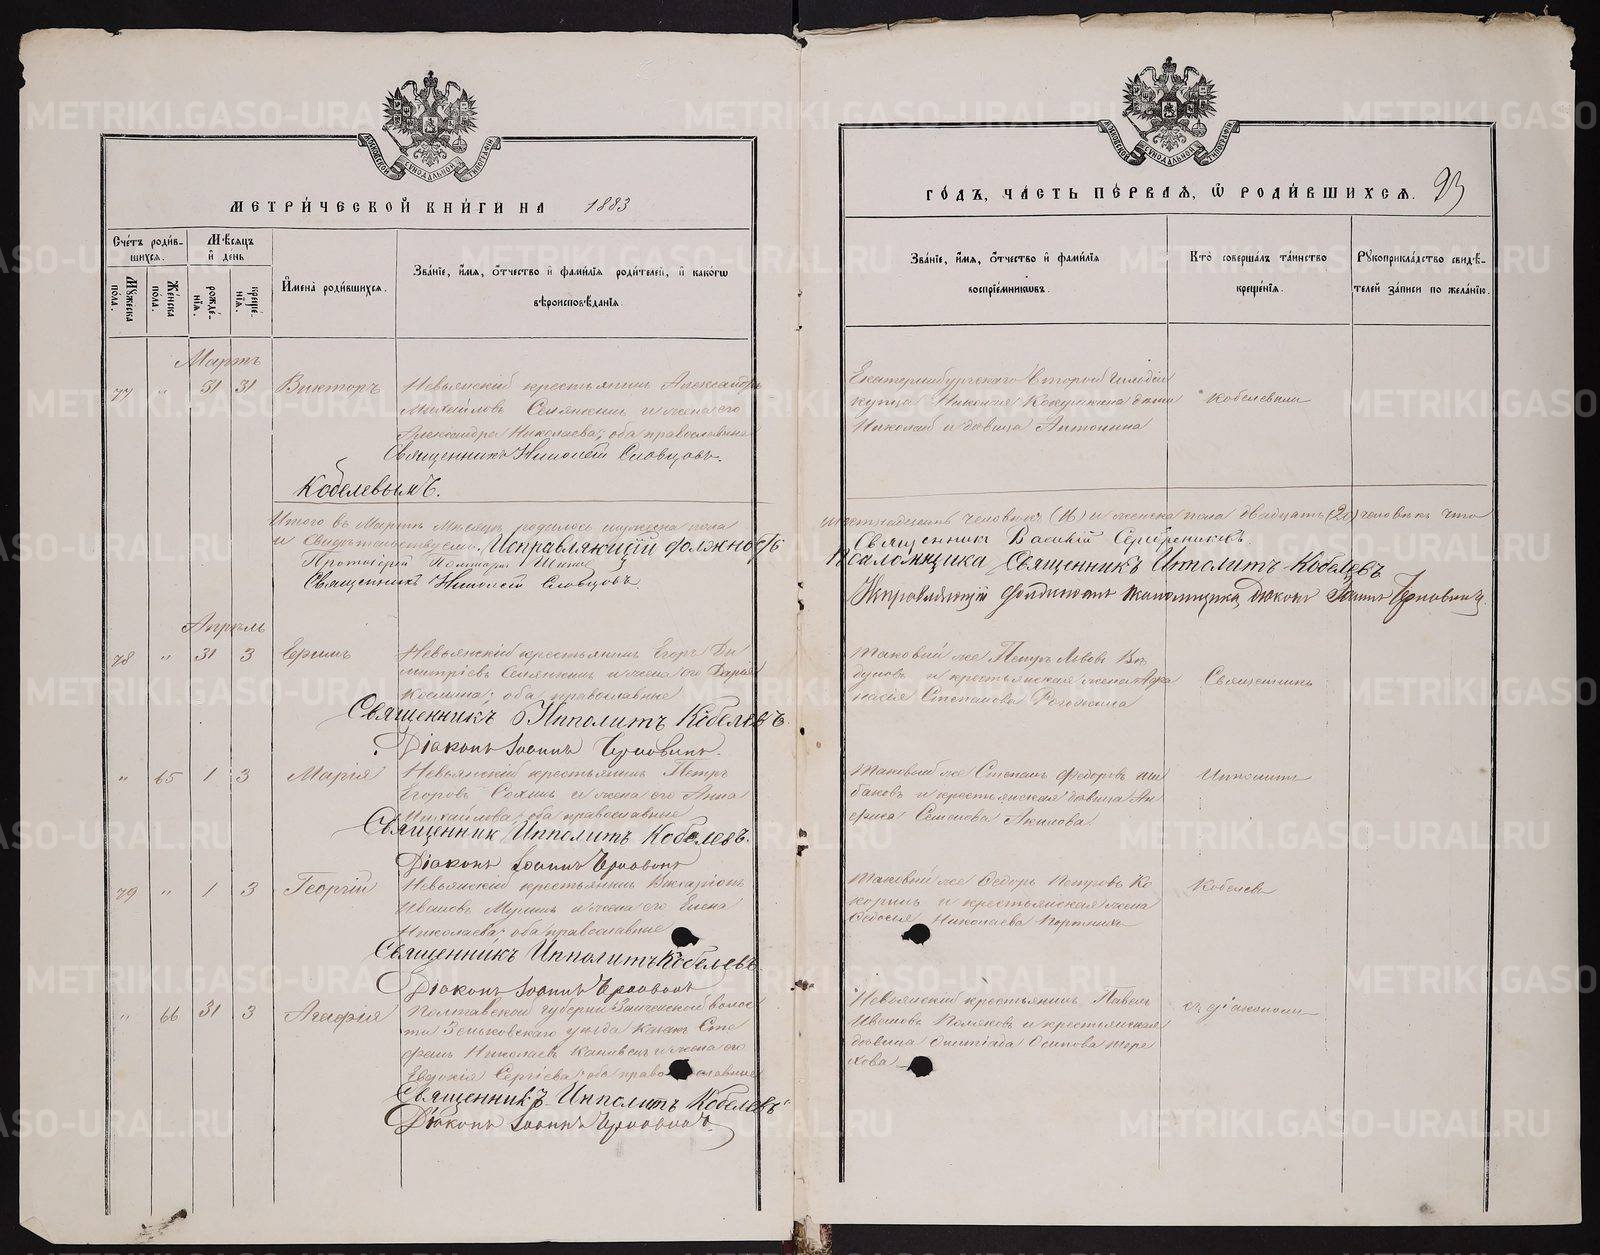 МОСКОВСКОЙ СѴНОДАЛЬНОЙ ТИПОГРАФІИ
МЕТРИ́ЧЕСКОЙ КНИ́ГИ НА 1883
Сче́тъ роди́в-
шихся.
Мѣ́сяцъ
и҆ день
Мꙋ́жеска
по́ла.
Же́нска
по́ла.
рожде́-
нїѧ.
креще́-
нїѧ.
И҆мена̀ роди́вшихся.
Зва́нїе, и҆́мѧ, ѻ҆́тчество и҆ фами́лїѧ роди́телей, и҆ како́гѡ
вѣроисповѣ́данїѧ.
Мартъ
77 " 31 31 Викторъ Невьянскій крестьянинъ Александръ
Михайловъ Селянкинъ и жена его
Александра Николаева, оба православные
Священникъ Николай Словцовъ.
Кобелевымъ.
Итого въ Мартѣ мѣсяцѣ родилось мужеска пола
и свидѣтельствуемъ. Исправляющій должность
Протоіерей
Священникъ Николай Словцовъ
Апрѣль
78 " 31 3 Невьянскій крестьянинъ Егоръ Ди
митріевъ Селянкинъ и жена его Дарья
Космина, оба православные
Священникъ Ипполитъ Кобелевъ
Діаконъ Іоаннъ
" 65 1 3 Марія Невьянскій крестьянинъ Петръ
Егоровъ Сохинъ и жена его Анна
Михайлова, оба православные
Священник Ипполитъ Кобелевъ.
Діаконъ Іоаннъ
79 " 1 3 Георгій Невьянскій крестьянинъ
Ивановъ и жена его Елена
Николаева, оба православные
Священникъ Ипполитъ Кобелевъ
Діаконъ Іоаннъ
" 66 31 3 Агафія Полтавской губерніи волос
ти Зеньковскаго уѣзда казакъ Сте
фанъ Николаевъ и жена его
Евдокія Сергіева, оба православные
Священникъ Ипполитъ Кобелевъ
Діаконъ Іоаннъ
МОСКОВСКОЙ СѴНОДАЛЬНОЙ ТИПОГРАФІИ
ГО́ДЪ, ЧА́СТЬ ПЕ́РВАѦ, Ѽ РОДИ́ВШИХСѦ. 93
Зва́нїе, и҆́мѧ, ѻ҆́тчество и҆ фами́лїѧ
воспрїе́мникѡвъ.
Кто̀ соверша́лъ та́инство
креще́нїѧ.
Рꙋкоприкла́дство свидѣ́-
телей за́писи по жела́нїю.
Екатеринбургскаго второй гильдіи
купца Николая дѣти Кобелевымъ
Николай и дѣвица Антонина
человѣкъ (16) и женска пола двадцать (20) человѣкъ что
Священникъ Василій Серебренниковъ
Псаломщика Священникъ Ипполитъ Кобелевъ
Исправляющій должность псаломщика діаконъ Іоаннъ
Таковый же Петръ Львовъ
и крестьянская жена Афа Священникъ
насія Степанова
Таковый же Степанъ Федоровъ Ипполитъ
и крестьянская дѣвица Ан
фиса Семенова
Таковый же Ѳедоръ Петровъ Ко Кобелевъ
и крестьянская жена
Ѳедосія Николаева
Невьянскій крестьянинъ Павелъ съ діакономъ
Ивановъ Поляковъ и крестьянская
дѣвица Осипова Тере
хова
METRIKI.GASO-URAL.RU